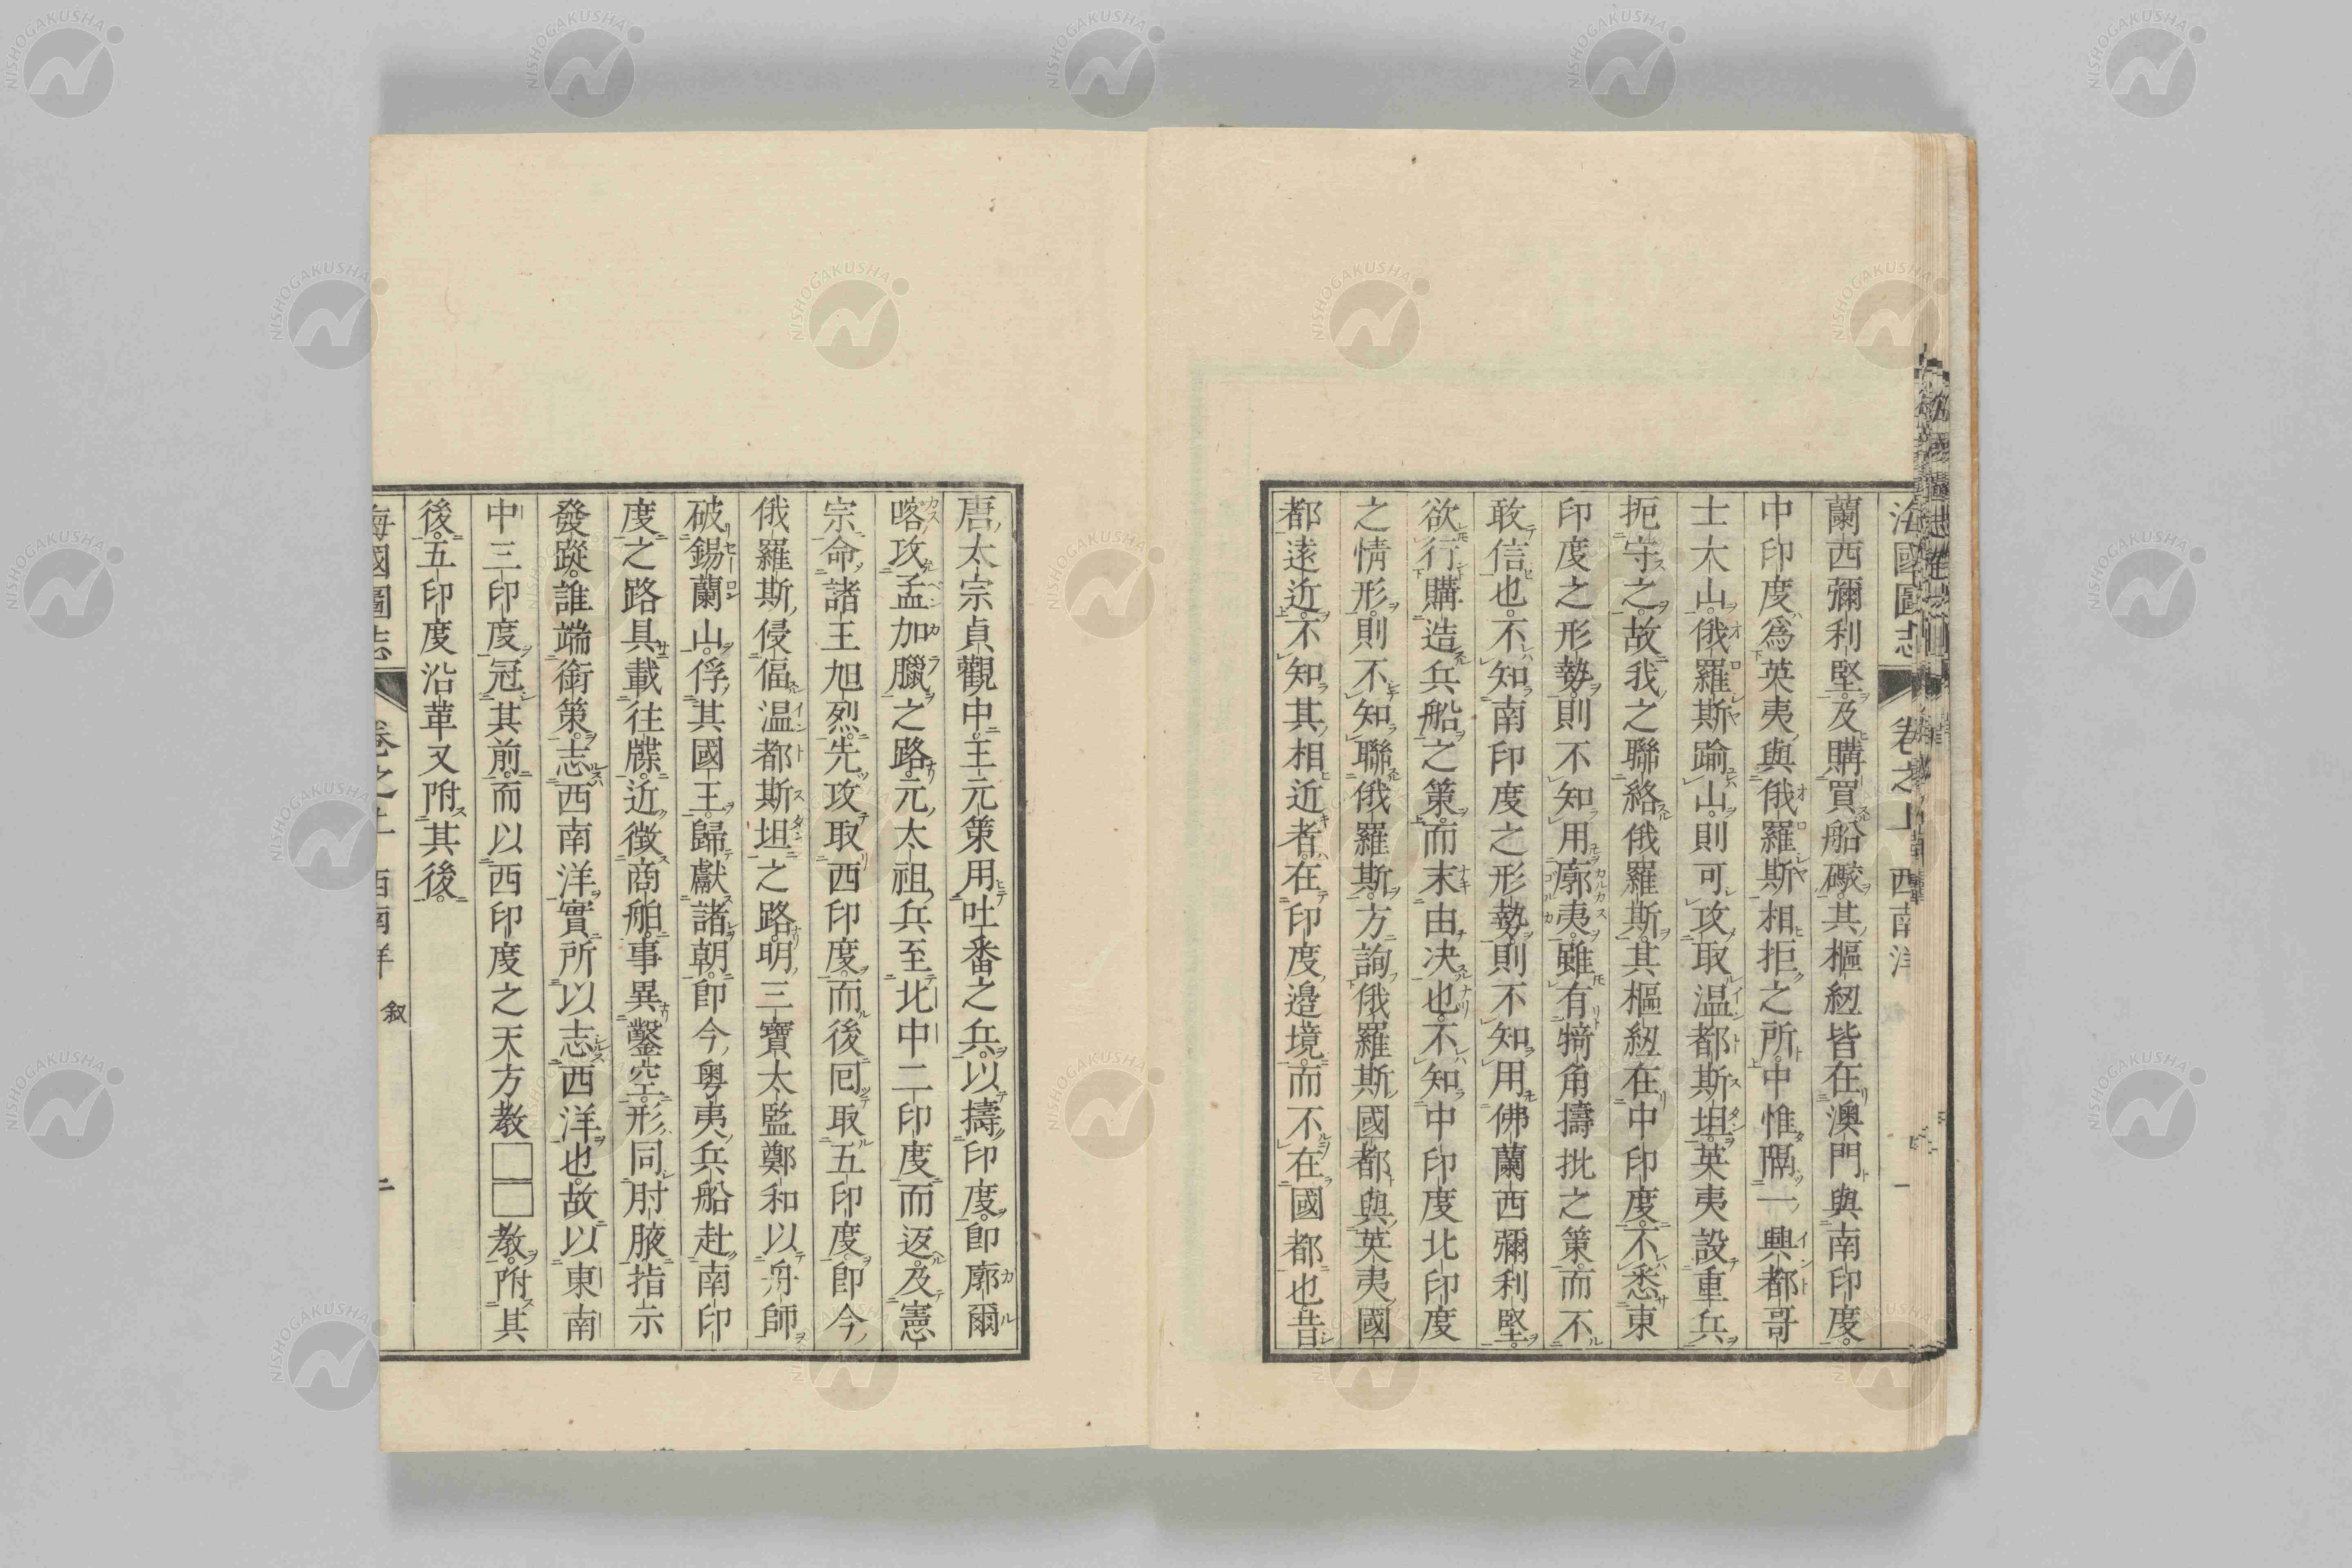 海國圖志 卷之上 西南洋 一
蘭西彌利堅及購買船礮。其樞紐皆在澳門與南印度。
中印度爲英夷與俄羅斯相拒之所。中惟隔一興都哥
士大山。俄羅斯踰山則可攻取温都斯坦。英夷設重兵
扼守之。故我之聯絡俄羅斯。其樞紐在中印度。不悉東
印度之形勢。則不知用廓夷。雖有犄角擣批之策。而不
敢信也。不知南印度之形勢。則不知用佛蘭西彌利堅。
欲行購造兵船之策。而末由决也。不知中印度北印度
之情形。則不知聯俄羅斯。方詢俄羅斯國都與英夷國
都逺近。不知其相近者。在印度邉境。而不在國都也。昔
唐太宗貞觀中。王元策用吐番之兵。以擣印度。卽廓爾
喀攻孟加臘之路。元太祖兵至北中二印度而返。及憲
宗命諸王旭烈。先攻取西印度。而後囘取五印度。卽今
俄羅斯侵偪温都斯坦之路。明三寶太監鄭和以舟師
破錫蘭山。俘其國王。歸獻諸朝。卽今粤夷兵船赴南印
度之路。具載往牒。近徵商舶。事異鑿空。形同肘腋。指示
發蹤。誰端銜策。志西南洋。實所以志西洋也。故以東南
中三印度冠其前。而以西印度之天方教□□教。附其
後。五印度沿革又附其後。
海國圖志 卷之上 西南洋 叙 二
NISHOGAKUSHA